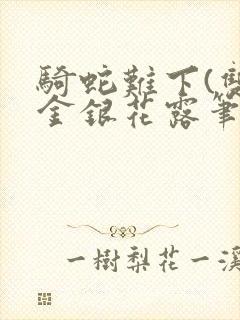 騎蛇難下(雙
金銀花露筆
一樹梨花一溪